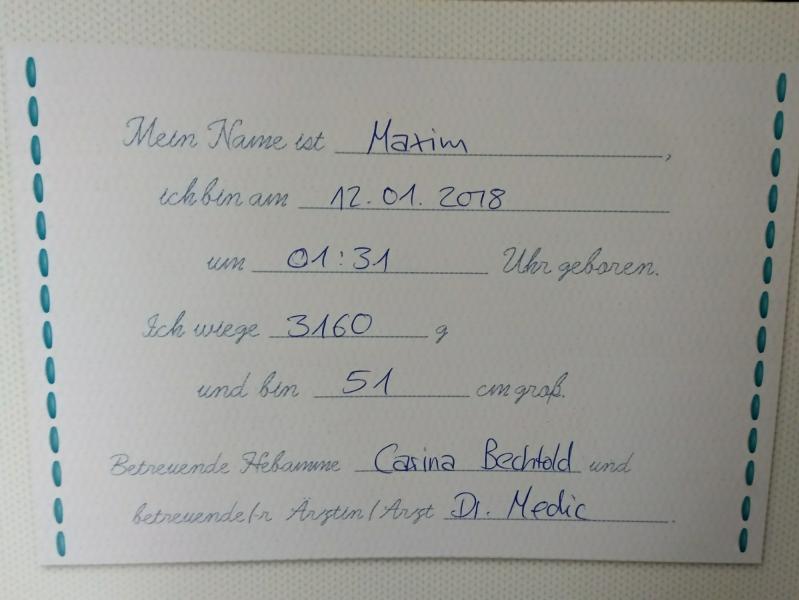 Mein Name ist Maxim,
ich bin am 12.01.2018
um 01:31 Uhr geboren.
Ich wiege 3160 g
und bin 51 cm groß.
Betreuende Hebamme Carina Bechtold und
betreuende/-r Ärztin/Arzt Dr. Medic.